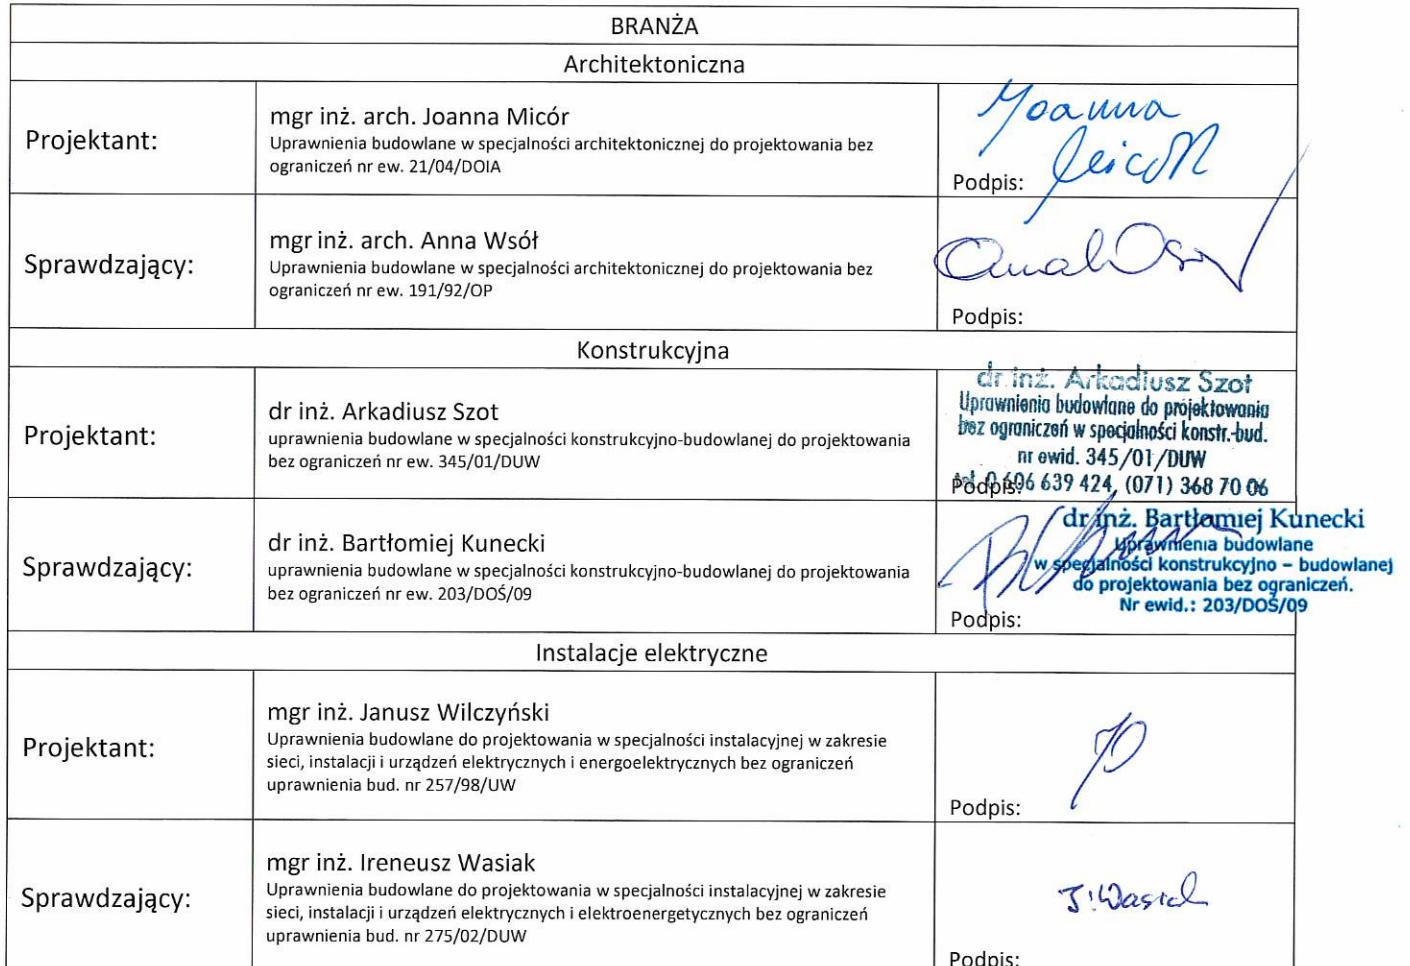 BRANŻA
Architektoniczna
Projektant:
mgr inż. arch. Joanna Micór
Uprawnienia budowlane w specjalności architektonicznej do projektowania bez
ograniczeń nr ew. 21/04/DOIA
Joanna
Micór
Podpis:
Sprawdzający:
mgr inż. arch. Anna Wsół
Uprawnienia budowlane w specjalności architektonicznej do projektowania bez
ograniczeń nr ew. 191/92/OP
Podpis:
Konstrukcyjna
Projektant:
dr inż. Arkadiusz Szot
uprawnienia budowlane w specjalności konstrukcyjno-budowlanej do projektowania
bez ograniczeń nr ew. 345/01/DUW
dr inż. Arkadiusz Szot
Uprawnienia budowlane do projektowania
bez ograniczeń w specjalności konstr.-bud.
nr ewid. 345/01/DUW
tel. 0 606 639 424, (071) 368 70 06
Podpis:
Sprawdzający:
dr inż. Bartłomiej Kunecki
uprawnienia budowlane w specjalności konstrukcyjno-budowlanej do projektowania
bez ograniczeń nr ew. 203/DOŚ/09
dr inż. Bartłomiej Kunecki
Uprawnienia budowlane
w specjalności konstrukcyjno – budowlanej
do projektowania bez ograniczeń.
Nr ewid.: 203/DOŚ/09
Podpis:
Instalacje elektryczne
Projektant:
mgr inż. Janusz Wilczyński
Uprawnienia budowlane do projektowania w specjalności instalacyjnej w zakresie
sieci, instalacji i urządzeń elektrycznych i energoelektrycznych bez ograniczeń
uprawnienia bud. nr 257/98/UW
Podpis:
Sprawdzający:
mgr inż. Ireneusz Wasiak
Uprawnienia budowlane do projektowania w specjalności instalacyjnej w zakresie
sieci, instalacji i urządzeń elektrycznych i elektroenergetycznych bez ograniczeń
uprawnienia bud. nr 275/02/DUW
I. Wasiak
Podpis: